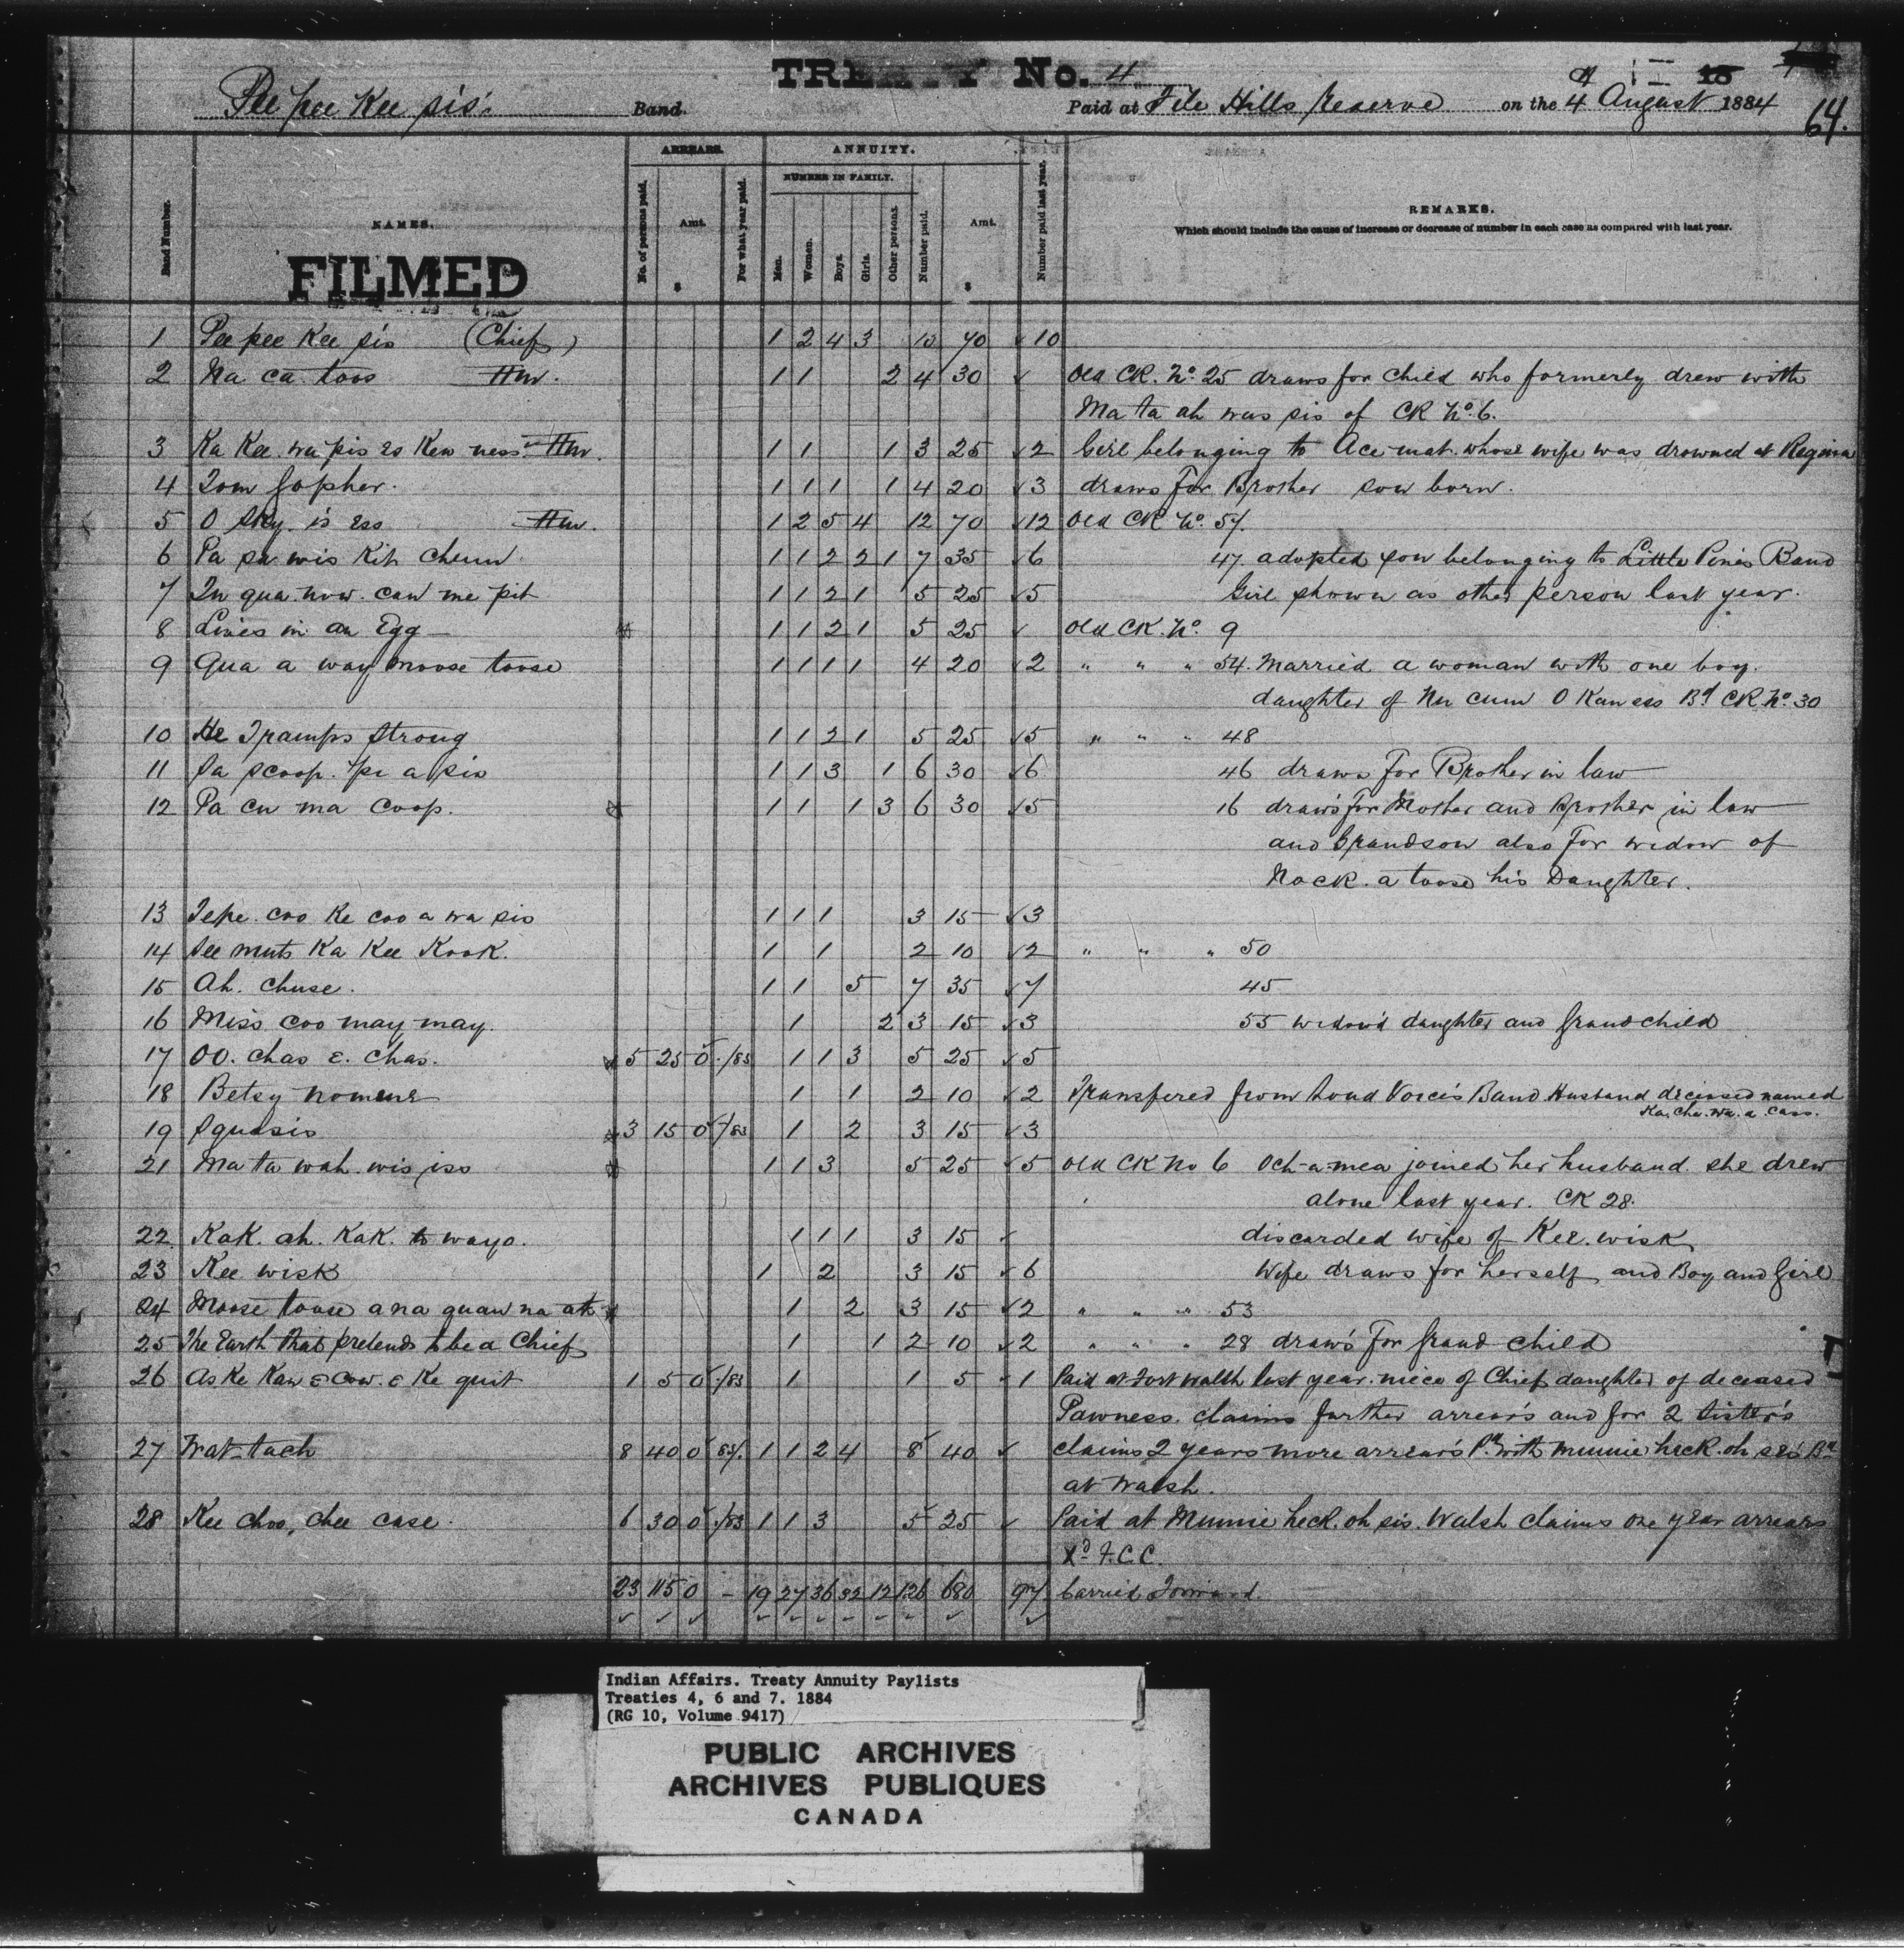 TREATY No. 4
Pee pee Kee sis' Band. Paid at File Hills Reserve on the 4 August 1884
64.
Band Number.
NAMES.
FILMED
ARREARS.
No. of persons paid.
Amt.
$
For what year paid.
ANNUITY.
NUMBER IN FAMILY.
Men.
Women.
Boys.
Girls.
Other persons.
Number paid.
Amt.
$
Number paid last year.
REMARKS.
Which should include the cause of increase or decrease of number in each case as compared with last year.
1 Pee pee Kee sis (Chief) 1 2 4 3 10 70 ✓ 10
2 Na ca toos 1 1 2 4 30 ✓ Old CK. No. 25 draws for child who formerly drew with
Ma ta ah was sis of CK No. 6.
3 Ka Kee wa pis es Kew ness 1 1 1 3 25 ✓ 2 Girl belonging to Ace mat whose wife was drowned at Regina
4 Tom Gopher. 1 1 1 1 4 20 ✓ 3 draws For Brother son born.
5 O Sky is ess 1 2 5 4 12 70 ✓ 12 Old CK No. 57.
6 Pa sa wis Kih cheum 1 1 2 2 1 7 35 ✓ 6 47. adopted son belonging to Little Pine's Band
7 In qua now can me pit 1 1 2 1 5 25 ✓ 5 Girl shown as other person last year.
8 Lives in an Egg 1 1 2 1 5 25 ✓ Old CK. No. 9
9 Qua a way moose toose 1 1 1 1 4 20 ✓ 2 " " " 54. Married a woman with one boy.
daughter of Nu cum O Kan ess Bd CK No 30
10 He Tramps Strong 1 1 2 1 5 25 ✓ 5 " " " 48
11 Sa scoop pe a sis 1 1 3 1 6 30 ✓ 6 46 draws For Brother in law
12 Pa cu ma coop. 1 1 1 3 6 30 ✓ 5 16 draws For Mother and Brother in law
and Grandson also For widow of
Nock a toose his Daughter.
13 Tepe coo Ke coo a wa sis 1 1 1 3 15 ✓ 3
14 See muts Ka Kee Kook. 1 1 2 10 ✓ 2 " " " 50
15 Ah. Chuse. 1 1 5 7 35 ✓ 7 45
16 Miss coo may may. 1 2 3 15 ✓ 3 55 widow'd daughter and Grandchild
17 OO. chas E. Chas. 5 25 0 /83 1 1 3 5 25 ✓ 5
18 Betsy Nomene 1 1 2 10 ✓ 2 Transfered from Loud Voice's Band Husband deceased named
Ka. Che. wa. a Cass.
19 Squasis 3 15 0 /83 1 2 3 15 ✓ 3
21 Ma ta wah wis iss 1 1 3 5 25 ✓ 5 Old CK No 6 Och-a-mea joined her husband she drew
alone last year. CK 28.
22 Kak. ah. Kak. to wayo. 1 1 1 3 15 ✓ discarded wife of Kee wisk
23 Kee wisk 1 2 3 15 ✓ 6 Wife draws for herself and Boy and Girl
24 Moose toose a na quaw na ah 1 2 3 15 ✓ 2 " " " 53
25 The Earth that pretends to be a Chief 1 1 2 10 ✓ 2 " " " 28 draws For Grand child
26 As Ke Kaw E Cow. E Ke quit 1 5 0 /83 1 1 5 ✓ 1 Paid at Fort Walsh last year niece of Chief daughter of deceased
Pawness. claims further arrear's and for 2 Sister's
27 Wat-tach 8 40 0 83/. 1 1 2 4 8 40 ✓ claims 2 years more arrear's Pd with Munnie heck. oh. ses' Bd
at Walsh.
28 Kee choo, chee case. 6 30 0 /83 1 1 3 5 25 ✓ Paid at Munnie heck. oh sis. Walsh claims one year arrears
Xd F.C.C.
23 115 0 – 19 27 36 32 12 126 680 97 Carried Forward.
Indian Affairs. Treaty Annuity Paylists
Treaties 4, 6 and 7. 1884
(RG 10, Volume 9417)
PUBLIC ARCHIVES
ARCHIVES PUBLIQUES
CANADA